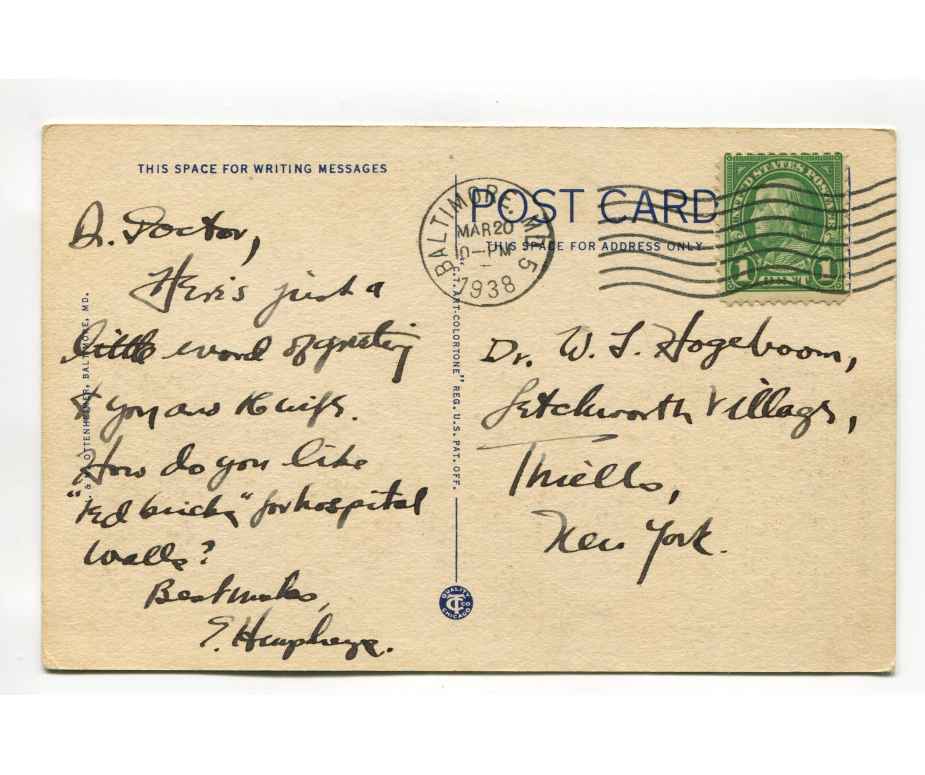 THIS SPACE FOR WRITING MESSAGES
D. Doctor,
Here's just a
little word of greeting
to you and the wife.
How do you like
"red bricks" for hospital
walls?
Best wishes,
E. Humphreys.
OTTENHEIMER, BALTIMORE, MD.
"C.T. ART-COLORTONE" REG. U.S. PAT. OFF.
QUALITY
CHICAGO
BALTIMORE, MD. 5
MAR 20
PM
1938
POST CARD
THIS SPACE FOR ADDRESS ONLY
UNITED STATES POSTAGE
1 CENT 1
Dr. W. J. Hogeboom,
Letchworth Village,
Thiells,
New York.